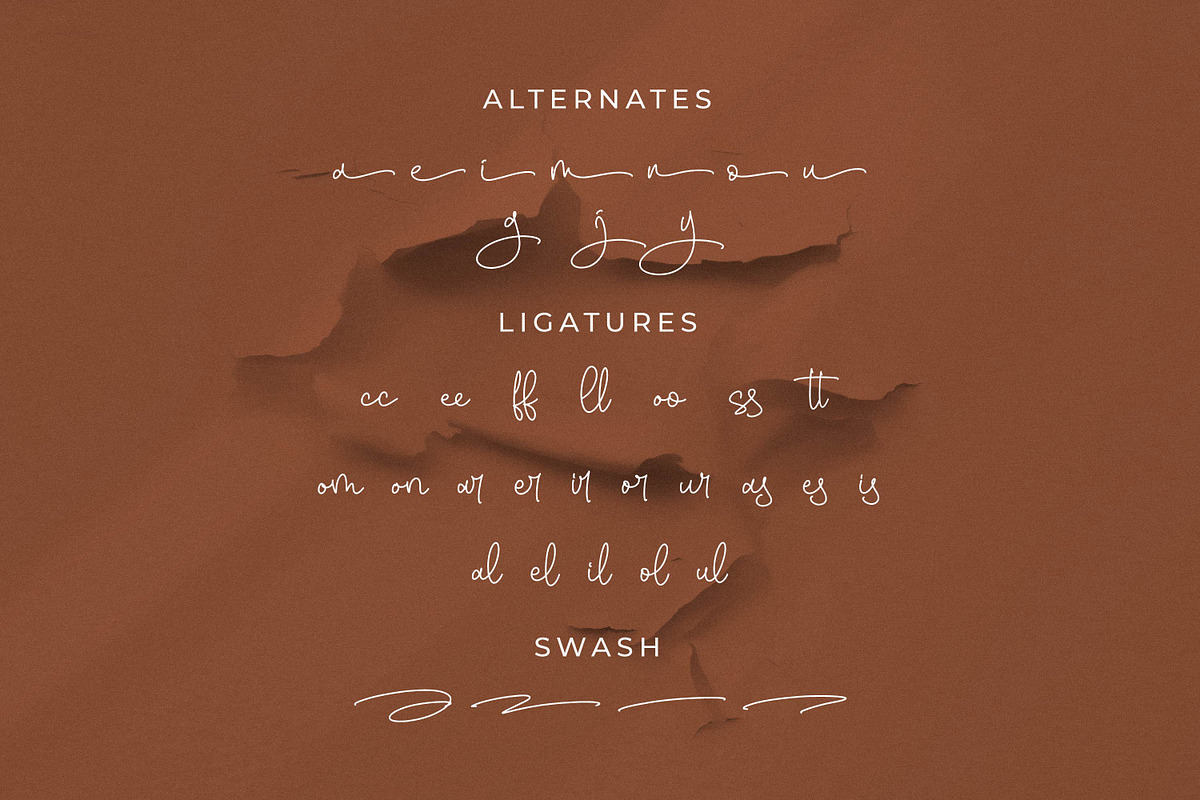 ALTERNATES
a e i m n o u
g j y
LIGATURES
cc ee ff ll oo ss tt
om on ar er ir or ur as es is
al el il ol ul
SWASH